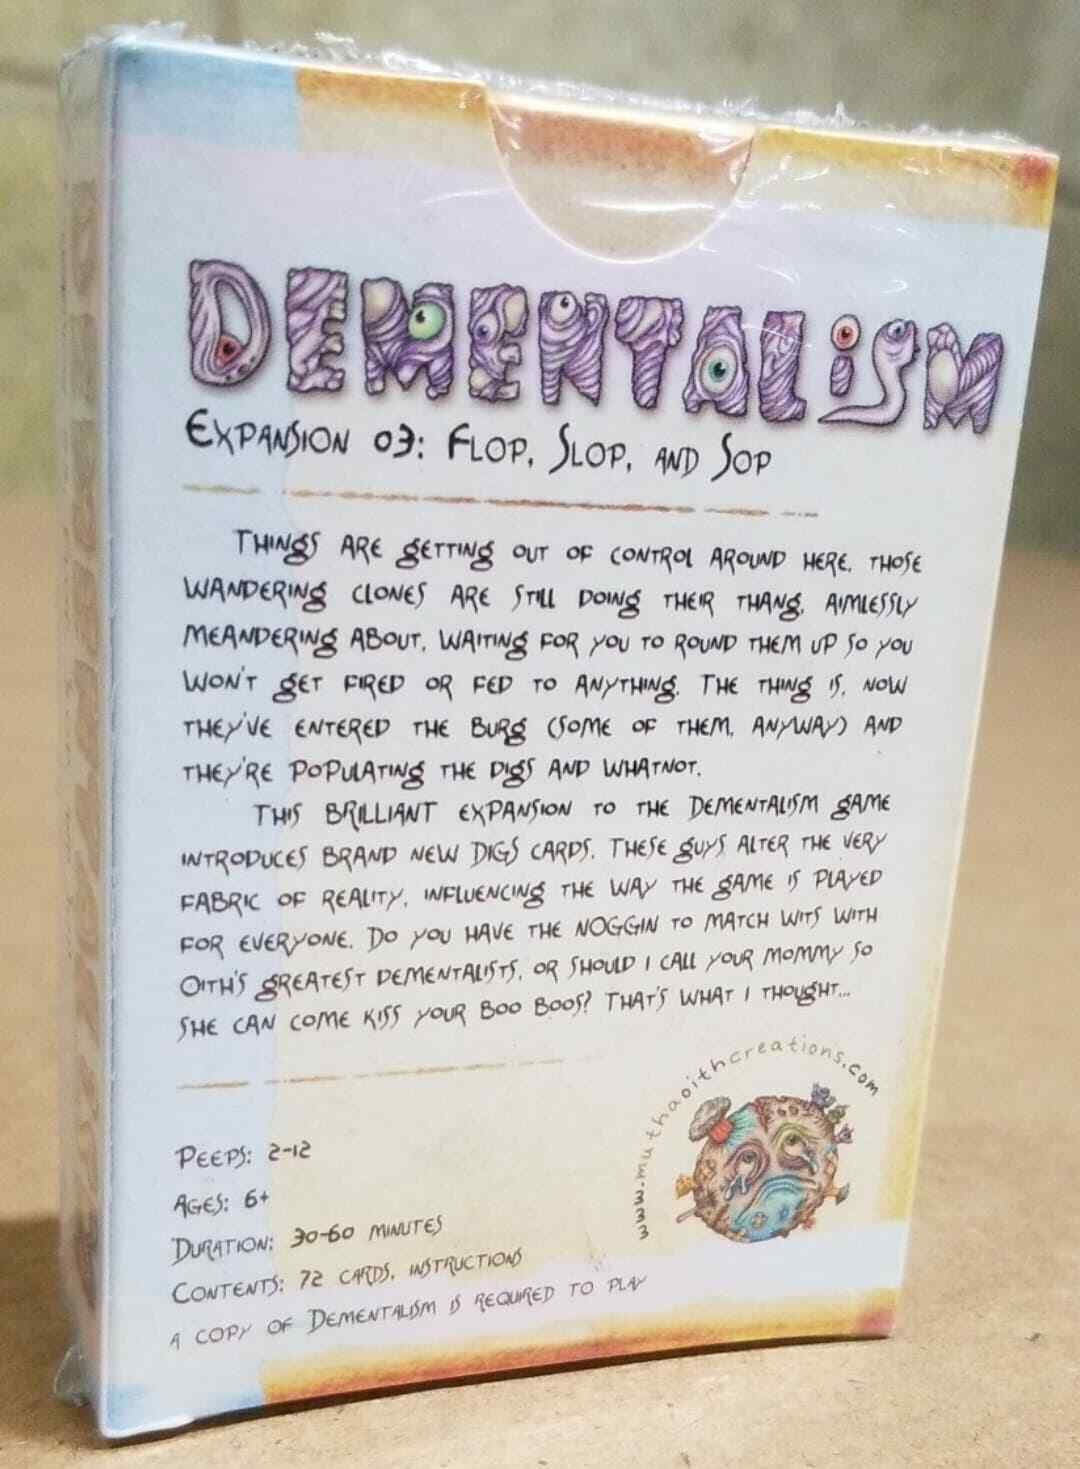 DEMENTALISM
EXPANSION 03: FLOP, SLOP, AND SOP
THINGS ARE GETTING OUT OF CONTROL AROUND HERE. THOSE
WANDERING CLONES ARE STILL DOING THEIR THANG, AIMLESSLY
MEANDERING ABOUT, WAITING FOR YOU TO ROUND THEM UP SO YOU
WON'T GET FIRED OR FED TO ANYTHING. THE THING IS, NOW
THEY'VE ENTERED THE BURG (SOME OF THEM, ANYWAY) AND
THEY'RE POPULATING THE DIGS AND WHATNOT.
THIS BRILLIANT EXPANSION TO THE DEMENTALISM GAME
INTRODUCES BRAND NEW DIGS CARDS. THESE GUYS ALTER THE VERY
FABRIC OF REALITY, INFLUENCING THE WAY THE GAME IS PLAYED
FOR EVERYONE. DO YOU HAVE THE NOGGIN TO MATCH WITS WITH
OITH'S GREATEST DEMENTALISTS, OR SHOULD I CALL YOUR MOMMY SO
SHE CAN COME KISS YOUR BOO BOOS? THAT'S WHAT I THOUGHT...
333.muthaoithcreations.com
PEEPS: 2-12
AGES: 6+
DURATION: 30-60 MINUTES
CONTENTS: 72 CARDS, INSTRUCTIONS
A COPY OF DEMENTALISM IS REQUIRED TO PLAY